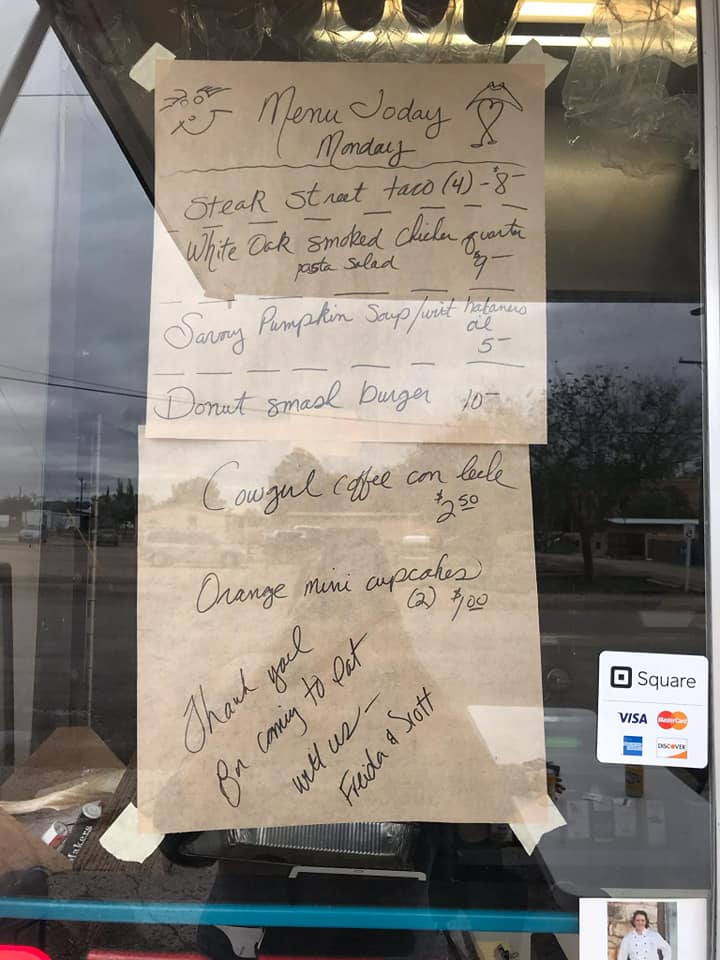 Menu Today
Monday
Steak Street taco (4) - $8-
White Oak smoked Chicken quarter
pasta salad $9-
Savory Pumpkin Soup/wit habanero
oil
5-
Donut smash burger 10-
Cowgirl coffee con leche
$2.50
Orange mini cupcakes
(2) $1.00
Thank yall
for coming to eat
with us -
Freida & Scott
Square
VISA MasterCard
AMERICAN EXPRESS DISCOVER
Makers